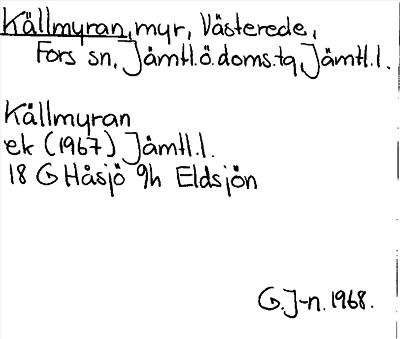 Källmyran, myr, Västerede,
Fors sn, Jämtl.ö.doms.tg, Jämtl.l.
Källmyran
ek (1967) Jämtl.l.
18 G Håsjö 9h Eldsjön
G.J-n. 1968.